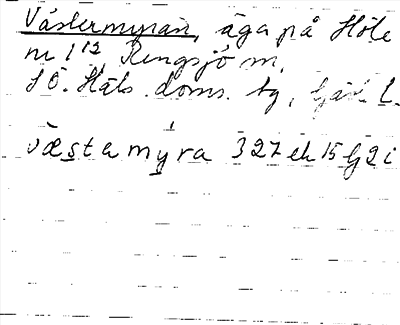 Västermyran, äga på Höle
nr 1¹², Rengsjö sn.
SÖ. Häls. doms. tg, Gävl. l.
væstamýra 327 eh 15 Gj 2 i